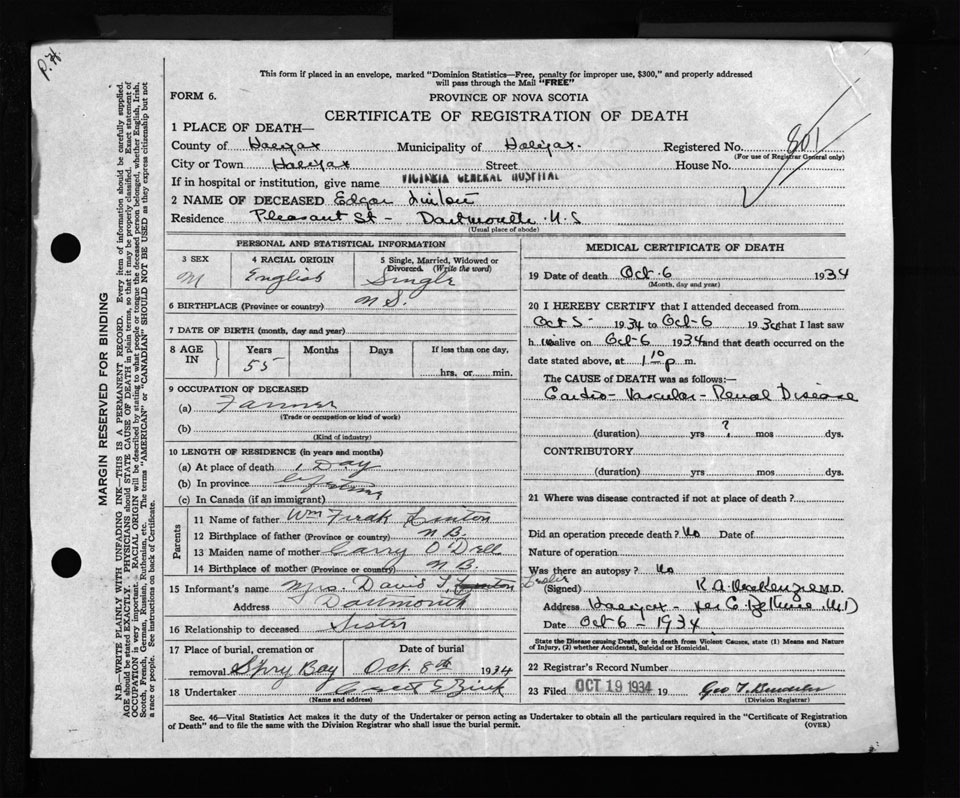 P.H.
This form if placed in an envelope, marked "Dominion Statistics—Free, penalty for improper use, $300," and properly addressed
will pass through the Mail "FREE"
FORM 6.
PROVINCE OF NOVA SCOTIA
CERTIFICATE OF REGISTRATION OF DEATH
1 PLACE OF DEATH—
County of Halifax Municipality of Halifax. Registered No. 801
(For use of Registrar General only)
City or Town Halifax Street House No.
If in hospital or institution, give name VICTORIA GENERAL HOSPITAL
2 NAME OF DECEASED Edgar Linton
Residence Pleasant St - Dartmouth N.S
(Usual place of abode)
PERSONAL AND STATISTICAL INFORMATION
3 SEX
M
4 RACIAL ORIGIN
English
5 Single, Married, Widowed or
Divorced. (Write the word)
Single
6 BIRTHPLACE (Province or country) N S.
7 DATE OF BIRTH (month, day and year)
8 AGE IN
Years
55
Months
Days
If less than one day,
hrs. or min.
9 OCCUPATION OF DECEASED
(a) Farmer
(Trade or occupation or kind of work)
(b)
(Kind of industry)
10 LENGTH OF RESIDENCE (in years and months)
(a) At place of death 1 Day
(b) In province lifetime
(c) In Canada (if an immigrant)
Parents
11 Name of father Wm Linton
12 Birthplace of father (Province or country) N B.
13 Maiden name of mother Carry O'Dell
14 Birthplace of mother (Province or country) N B.
15 Informant's name Mrs. David
Address Dartmouth
16 Relationship to deceased Sister
17 Place of burial, cremation or
removal Spry Bay
Date of burial
Oct. 8th 1934
18 Undertaker Zink
(Name and address)
MEDICAL CERTIFICATE OF DEATH
19 Date of death Oct. 6 1934
(Month, day and year)
20 I HEREBY CERTIFY that I attended deceased from
Oct 5 - 1934 to Oct-6 1934 that I last saw
him alive on Oct-6 1934 and that death occurred on the
date stated above, at 1 10 p m.
The CAUSE of DEATH was as follows:—
Cardio - Vascular - Renal Disease
(duration) yrs ? mos dys.
CONTRIBUTORY
(duration) yrs mos dys.
21 Where was disease contracted if not at place of death?
Did an operation precede death? No Date of
Nature of operation
Was there an autopsy? No
(Signed) K. A. MacKenzie M.D.
Address Halifax - per M.D
Date Oct 6 - 1934
State the Disease causing Death, or in death from Violent Causes, state (1) Means and Nature
of Injury, (2) whether Accidental, Suicidal or Homicidal.
22 Registrar's Record Number
23 Filed OCT 19 1934 19 Geo T.
(Division Registrar)
Sec. 46—Vital Statistics Act makes it the duty of the Undertaker or person acting as Undertaker to obtain all the particulars required in the "Certificate of Registration
of Death" and to file the same with the Division Registrar who shall issue the burial permit.
(OVER)
MARGIN RESERVED FOR BINDING
N.B.—WRITE PLAINLY WITH UNFADING INK—THIS IS A PERMANENT RECORD. Every item of information should be carefully supplied.
AGE should be stated EXACTLY. PHYSICIANS should STATE CAUSE OF DEATH in plain terms, so that it may be properly classified. Exact statement of
OCCUPATION is very important. RACIAL ORIGIN will be described by stating to what people or tongue the deceased person belonged, whether English, Irish,
Scotch, French, German, Russian, Ruthenian, etc. The terms "AMERICAN" or "CANADIAN" SHOULD NOT BE USED as they express citizenship but not
a race or people. See instructions on back of Certificate.